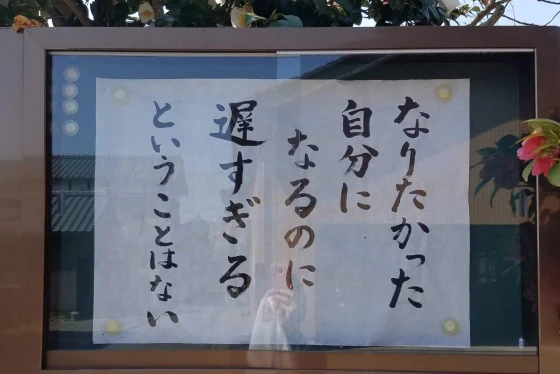 なりたかった
自分に
なるのに
遅すぎる
ということはない